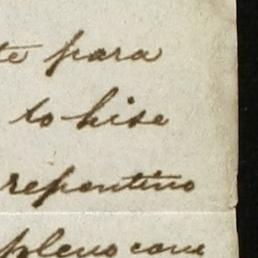 te para
to hise
repentino
pleno con